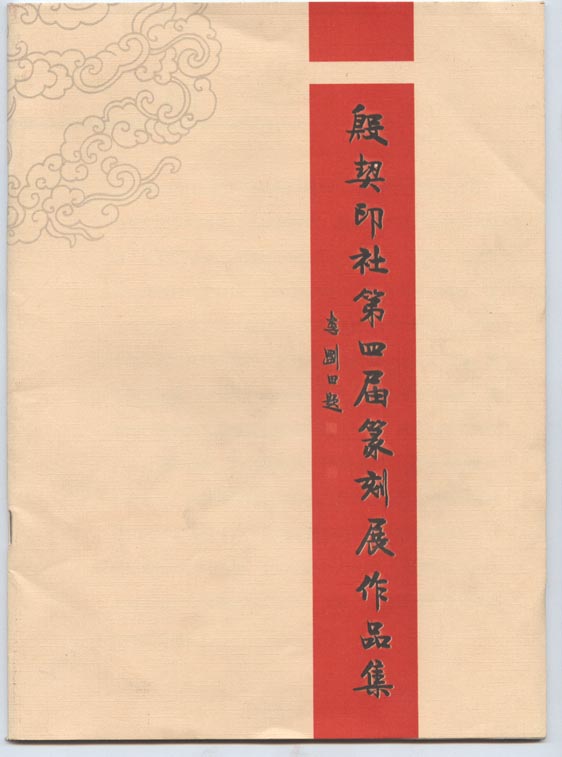 殷契印社第四届篆刻展作品集
李刚田题